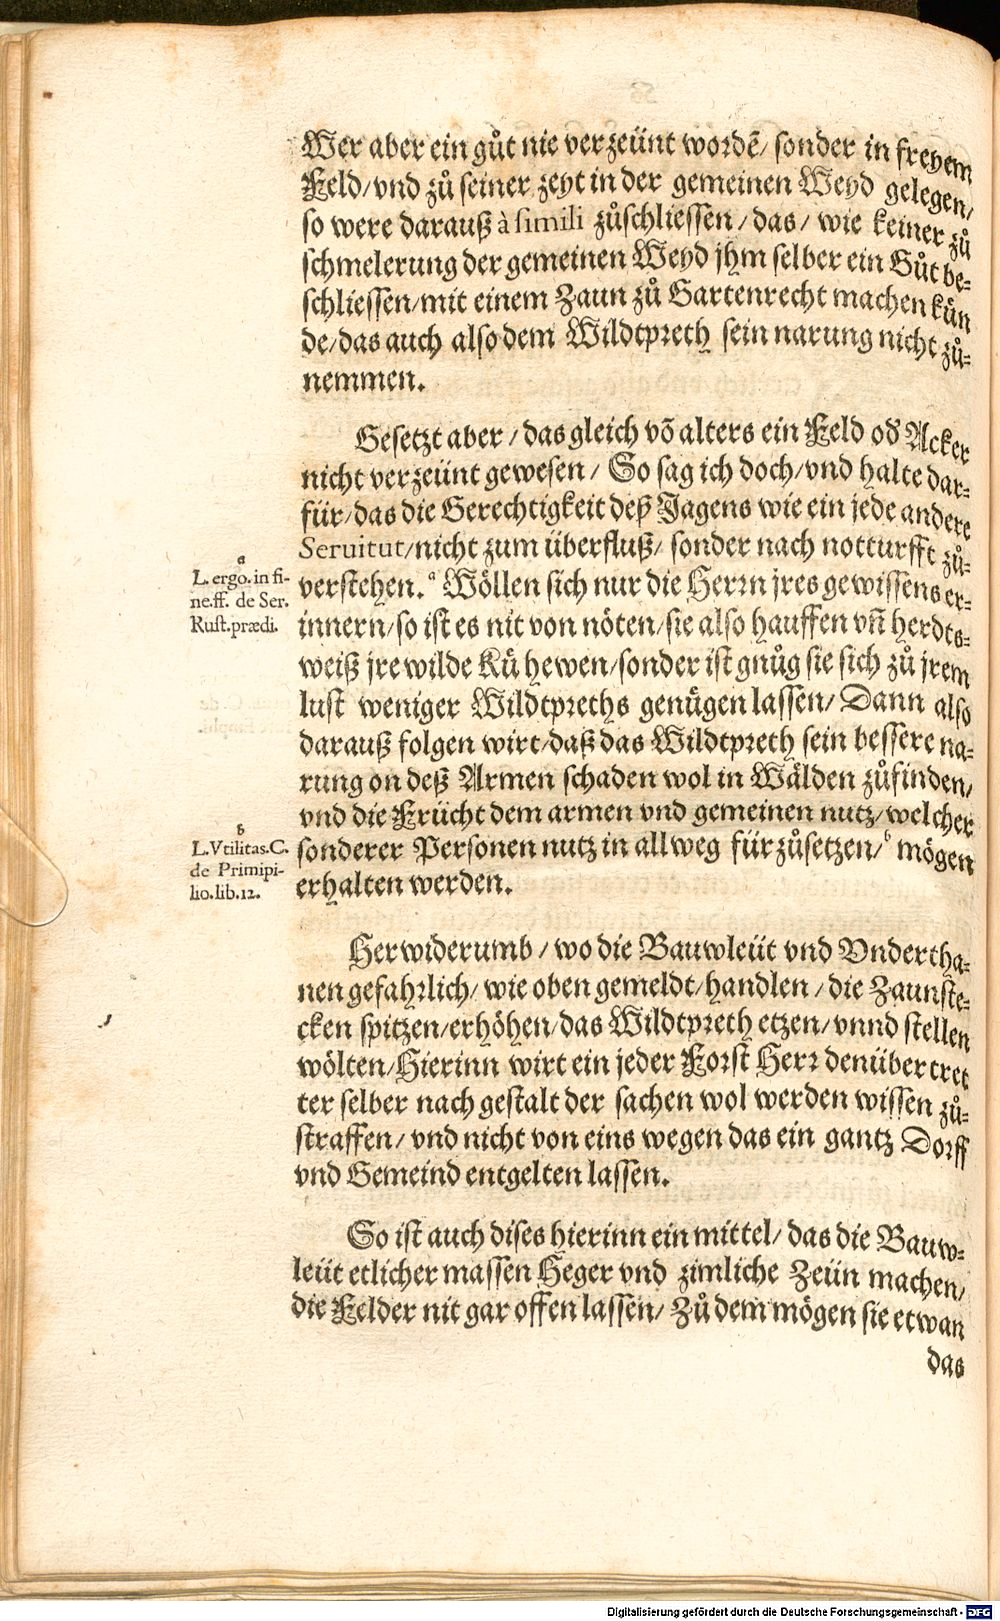 Wer aber ein gůt nie verzeünt wordẽ/ sonder in freyem
Feld/vnd zů seiner zeyt in der gemeinen Weyd gelegen/
so were darauß à simili zůschliessen/das/ wie keiner zů
schmelerung der gemeinen Weyd jhm selber ein Gůt be-
schliessen/mit einem Zaun zů Gartenrecht machen kün
de/das auch also dem Wildtpreth sein narung nicht zů-
nemmen.
Gesetzt aber/ das gleich võ alters ein Feld oď Acker
nicht verzeünt gewesen/ So sag ich doch/vnd halte dar-
für/das die Gerechtigkeit deß Jagens wie ein jede andere
Seruitut/nicht zum überfluß/ sonder nach notturfft zů-
verstehen.ᵃ Wöllen sich nur die Herrn jres gewissens er-
innern/so ist es nit von nöten/sie also hauffen vñ herdts-
weiß jre wilde Kü hewen/sonder ist gnůg sie sich zů jrem
lust weniger Wildtpreths genügen lassen/ Dann also
darauß folgen wirt/daß das Wildtpreth sein bessere na-
rung on deß Armen schaden wol in Wälden zůfinden/
vnd die Frücht dem armen vnd gemeinen nutz/welcher
sonderer Personen nutz in allweg fürzůsetzen/ᵇ mögen
erhalten werden.
a
L. ergo. in fi-
ne.ff. de Ser.
Rust.prædi.
b
L. Vtilitas.C.
de Primipi-
lio.lib.12.
Herwiderumb/ wo die Bauwleüt vnd Vndertha-
nen gefahrlich/ wie oben gemeldt/handlen/ die Zaunste-
cken spitzen/erhöhen/das Wildtpreth etzen/vnnd stellen
wölten/Hierinn wirt ein jeder Forst Herr den übertret
ter selber nach gestalt der sachen wol werden wissen zů-
straffen/ vnd nicht von eins wegen das ein gantz Dorff
vnd Gemeind entgelten lassen.
So ist auch dises hierinn ein mittel/ das die Bauw-
leüt etlicher massen Heger vnd zimliche Zeün machen/
die Felder nit gar offen lassen/ Zů dem mögen sie etwan
das
Digitalisierung gefördert durch die Deutsche Forschungsgemeinschaft - DFG